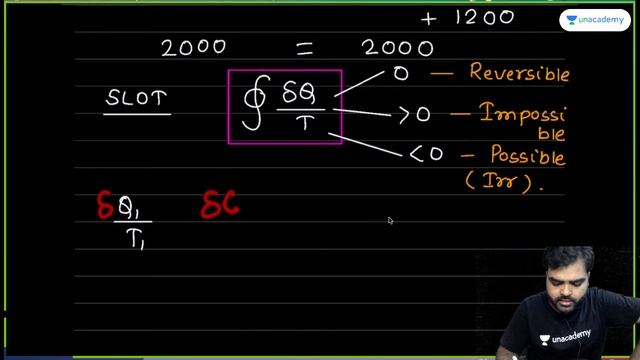 + 1200
unacademy
2000 = 2000
SLOT
∮ δQ / T
0 — Reversible
>0 — Impossi
ble
<0 — Possible
(Irr).
δQ₁ / T₁ δC
unacademy